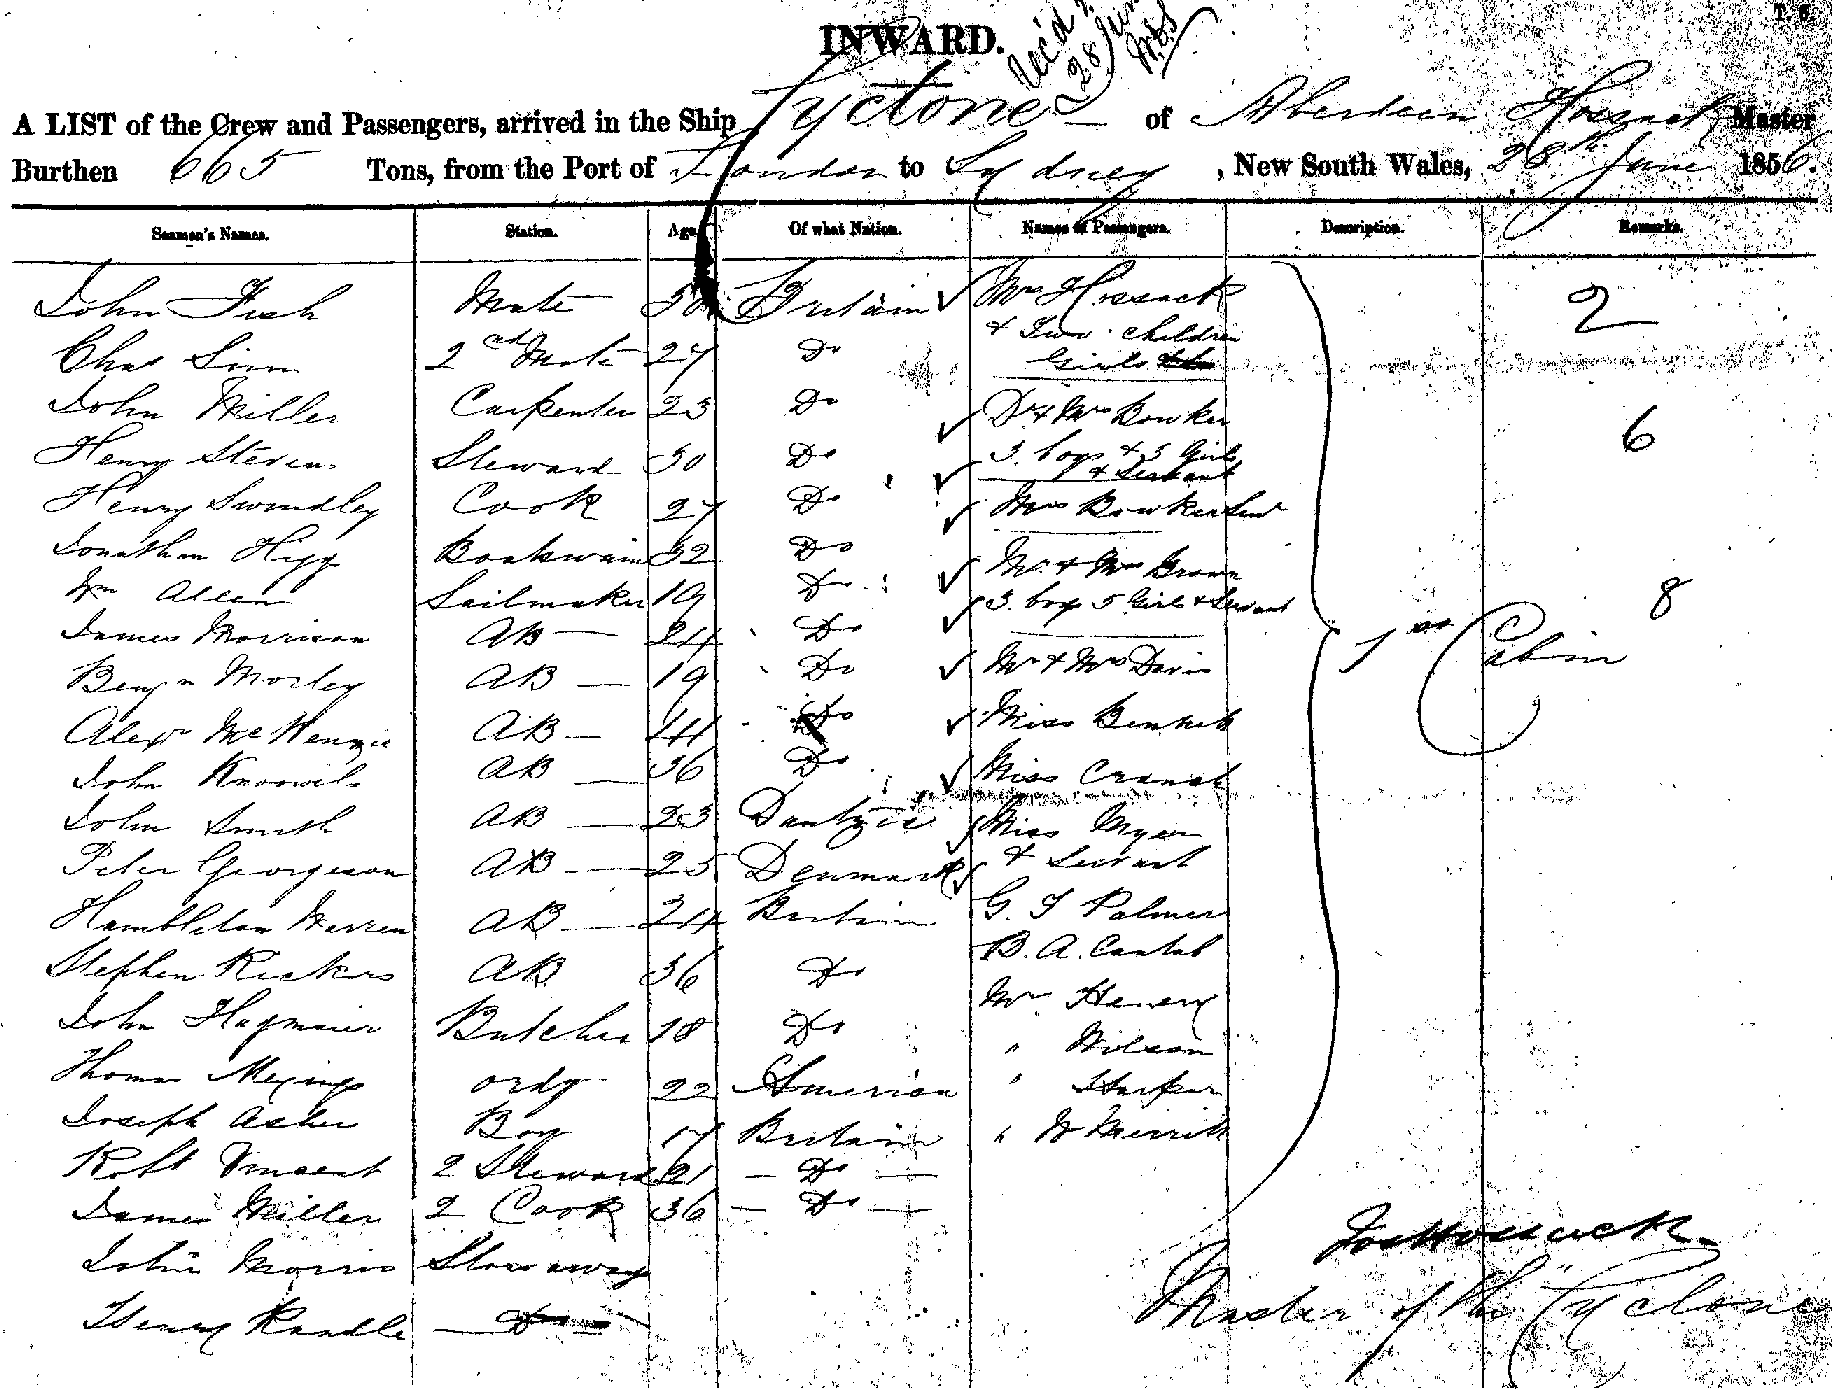 INWARD.
Rec'd
28 June
A LIST of the Crew and Passengers, arrived in the Ship Cyclone of Aberdeen Hossack Master
Burthen 665 Tons, from the Port of London to Sydney, New South Wales, 28th June 1856.
Seamen's Names. Station. Age Of what Nation. Names of Passengers. Description. Remarks.
John Fish Mate 30 Britain Mrs Hossack 2
& Two Children
Chas Sim 2nd Mate 27 Do Girls
John Miller Carpenter 23 Do Dr & Mrs Bowker 6
Henry Steven Steward 30 Do 3 boys & 3 Girls
& Servant
Henry Swindley Cook 27 Do Mrs Bowker Senr
Jonathan Higg Boatswain 32 Do Mr & Mrs Brown
Wm Allen Sailmaker 19 Do 3 boys 5 Girls & Servant 8
James Morrison AB 24 Do 1st Cabin
Benjn Morley AB 19 Do Mr & Mrs Davis
Alexr McKenzie AB 44 Do Miss
John AB 36 Do Miss
John Smith AB 23 Dantzic Miss Myer
Peter Georgeson AB 25 Denmark & Servant
Hambleton Warren AB 24 Britain G. F Palmer
B. A. Cantab
Stephen Rickers AB 36 Do Mr Henery
John Butcher 18 Do " Wilson
Thomas ordy 22 America " Harper
Joseph Asher Boy 17 Britain " W Merritt
Robt Vincent 2 Steward 21 Do
James Miller 2 Cook 36 Do
John Morris Stowaway
Henry Randle Do
Jas Hossack
Master of the "Cyclone